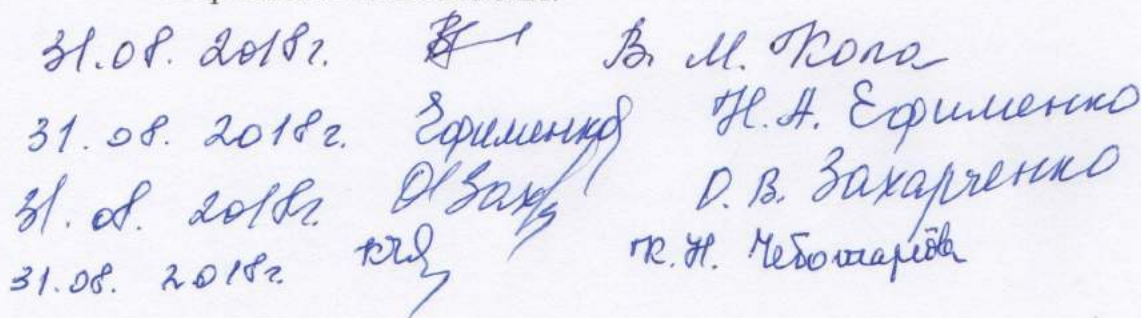 31.08. 2018г. В. М. Копа
31.08. 2018г. Ефименко Н. А. Ефименко
31.08. 2018г. О Зах О. В. Захарченко
31.08. 2018г. К. Н. Чебошарёва